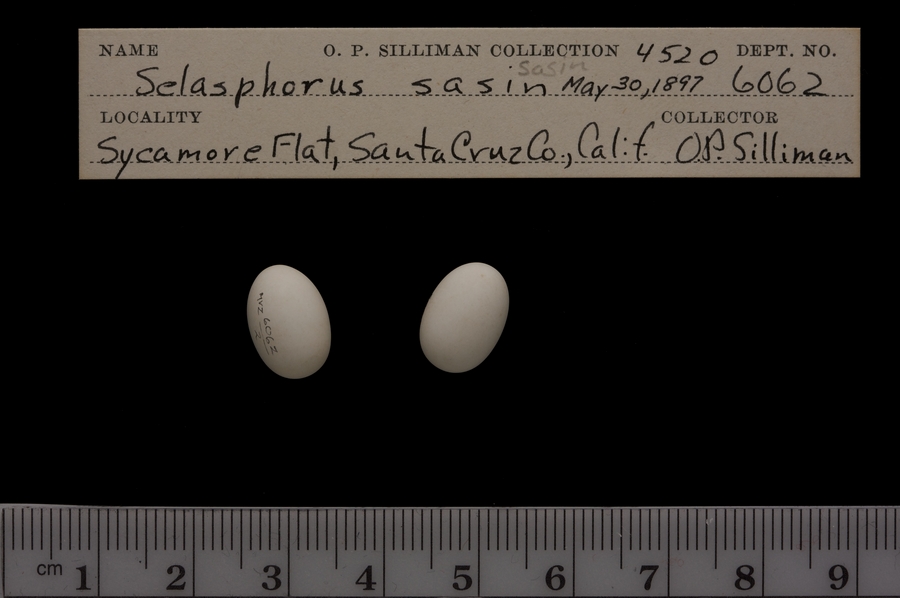 NAME O. P. SILLIMAN COLLECTION 4520 DEPT. NO.
sasin
Selasphorus sasin May-30, 1897 6062
LOCALITY COLLECTOR
Sycamore Flat, Santa Cruz Co., Calif. O.P. Silliman
MVZ 6062
2
cm 1 2 3 4 5 6 7 8 9